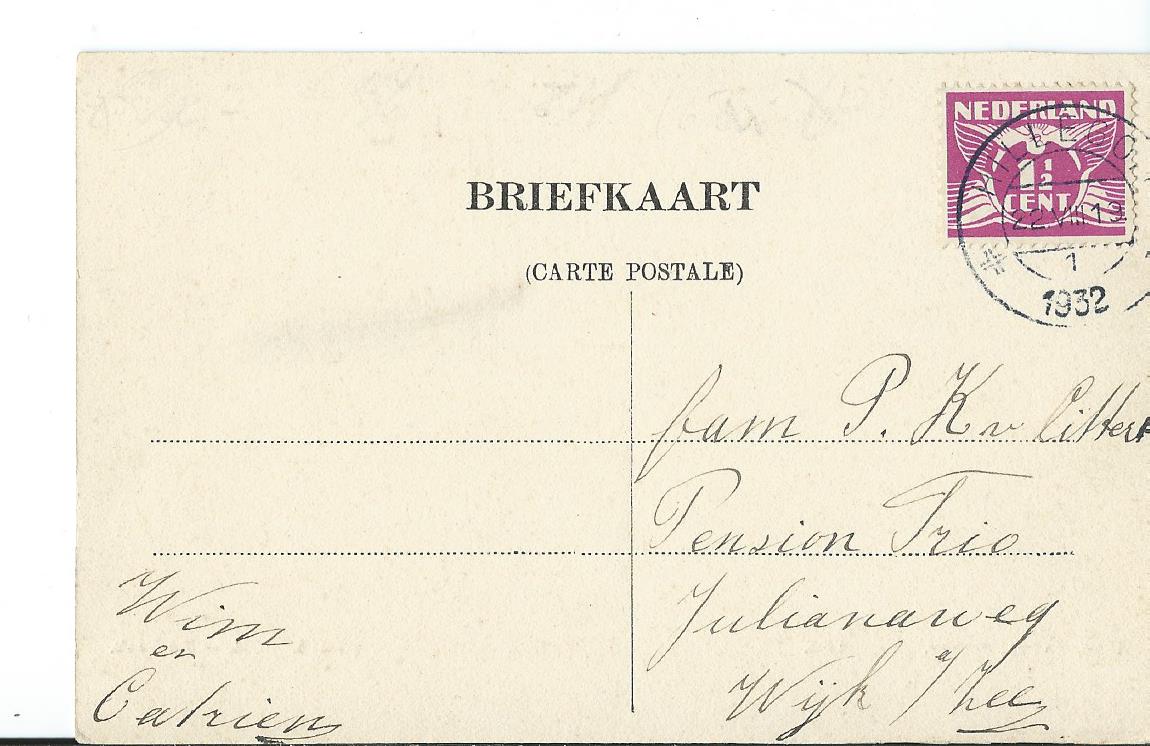 NEDERLAND
1 1/2
CENT
HILLEGO
22.VIII.19
1
1932
BRIEFKAART
(CARTE POSTALE)
fam P. K v Citters
Pension Trio
Julianaweg
Wijk a/Zee
Wim
en
Catrien